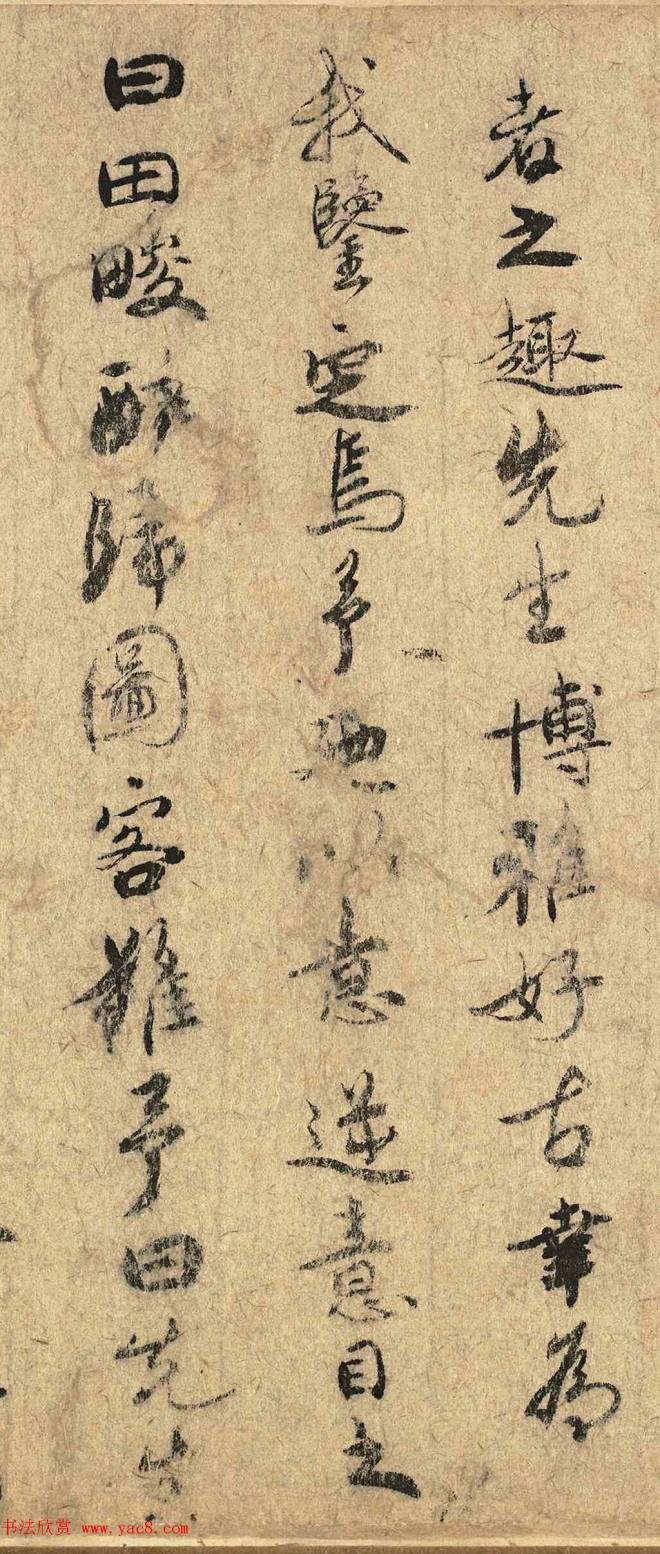 者之趣先生博雅好古幸為
我鑒定焉予逆以意逆意目之
曰田畯醉歸圖客難予曰先生
书法欣赏 www.yac8.com